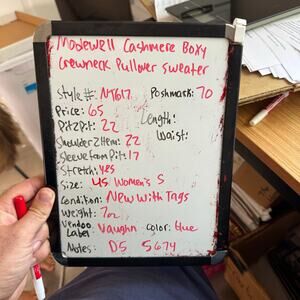 Madewell Cashmere Boxy
Crewneck Pullover Sweater
Style #: NT617 Poshmark: 70
Price: 65 Length:
Pit2Pit: 22 Waist:
Shoulder2Hem: 22
Sleeve from Pit: 17
Stretch: yes
Size: US Women's S
Condition: New With Tags
Weight: 7oz
Vendoo Label Vaughn Color: Blue
Notes: D5 5674